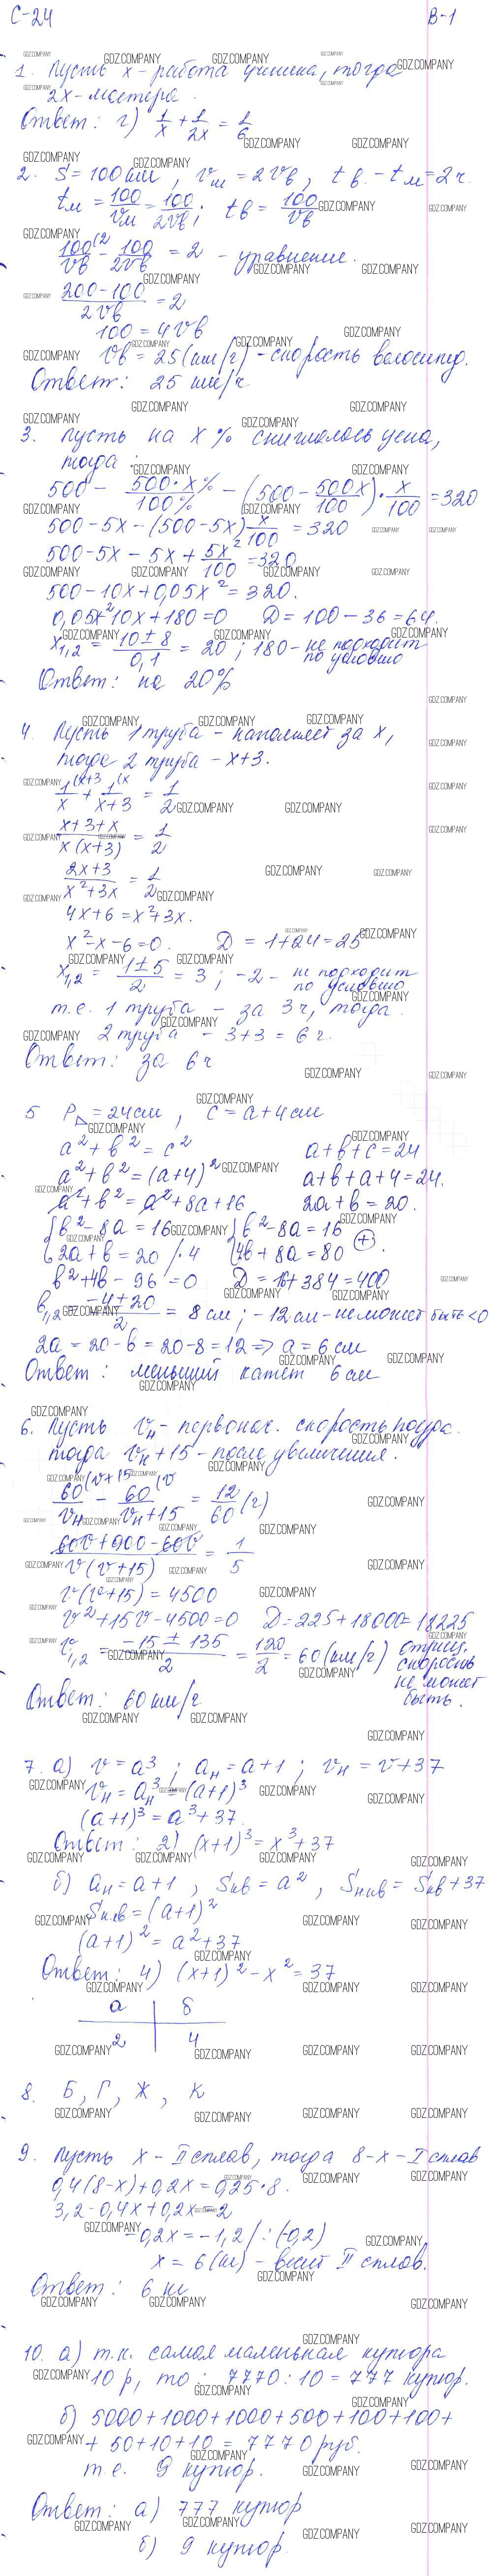 С-24 В-1
1. Пусть x - работа ученика, тогда
2x - мастера.
Ответ: г) 1/x + 1/2x = 1/6
2. S = 100 км, vм = 2vв, tв. - tм = 2 ч.
tм = 100/vм = 100/2vв; tв = 100/vв
100(2/vв - 100/2vв = 2 - уравнение.
200-100/2vв = 2
100 = 4vв
vв = 25 (км/г) - скорость велосипед.
Ответ: 25 км/ч
3. Пусть на x % снижалась цена,
тогда:
500 - 500·x%/100% - (500 - 500x/100)·x/100 = 320
500 - 5x - (500-5x)x/100 = 320
500 - 5x - 5x + 5x²/100 = 320
500 - 10x + 0,05x² = 320.
0,05x² 10x + 180 = 0 D = 100 - 36 = 64.
x1,2 = 10±8/0,1 = 20; 180 - не подходит
по условию
Ответ: на 20%
4. Пусть 1 труба - наполняет за x,
тогда 2 труба - x+3.
1(x+3/x + 1(x/x+3 = 1/2
x+3+x/x(x+3) = 1/2
2x+3/x²+3x = 1/2
4x+6 = x²+3x.
x²-x-6=0. D = 1+24 = 25
x1,2 = 1±5/2 = 3; -2 - не подходит
по условию
т.е. 1 труба - за 3ч, тогда
2 труба - 3+3 = 6 ч.
Ответ: за 6 ч
5 P△ = 24 см, c = a+4 см
a²+b² = c² a+b+c = 24
a²+b² = (a+4)² a+b+a+4 = 24.
a²+b² = a²+8a+16 2a+b = 20.
{b²-8a = 16 {b²-8a = 16
{2a+b = 20 /·4 {4b+8a = 80 (+).
b²+4b-96 = 0 D = 16+384 = 400
b1,2 = -4±20/2 = 8 см; -12 см - не может быть <0
2a = 20-b = 20-8 = 12 => a = 6 см
Ответ: меньший катет 6 см
6. Пусть vн - первонач. скорость поезда.
тогда vн+15 - после увеличения.
60(v+15/vн - 60(v/vн+15 = 12/60 (г)
60v+900-60v/v(v+15) = 1/5
v(v+15) = 4500
v²+15v-4500=0 D=225+18000=18225
v1,2 = -15±135/2 = 120/2 = 60 (км/г) отриц.
скорость
не может
быть.
Ответ: 60 км/г
7. а) v = a³; aн = a+1; vн = v+37
vн = aн³ = (a+1)³
(a+1)³ = a³+37.
Ответ: 2) (x+1)³ = x³+37
б) aн = a+1, Sкв = a², Sн кв = Sкв+37
Sн.кв = (a+1)²
(a+1)² = a²+37
Ответ: 4) (x+1)² - x² = 37
а | б
2 | 4
8. Б, Г, Ж, К
9. Пусть x - II сплав, тогда 8-x - I сплав
0,4(8-x)+0,2x = 0,25·8.
3,2-0,4x+0,2x = 2
-0,2x = -1,2 /:(-0,2)
x = 6 (кг) - весит II сплав.
Ответ: 6 кг
10. а) т.к. самая маленькая купюра
10 р, то: 7770:10 = 777 купюр.
б) 5000+1000+1000+500+100+100+
+50+10+10 = 7770 руб.
т.е. 9 купюр.
Ответ: а) 777 купюр
б) 9 купюр.
GDZ.COMPANY